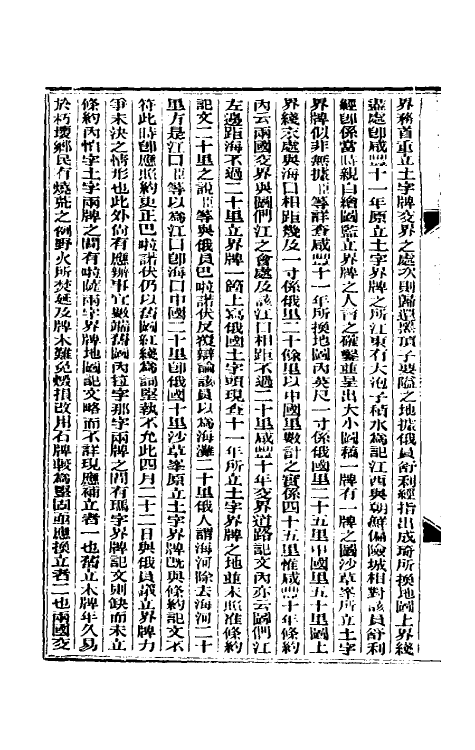 界務首重立土字牌交界之處次則歸還黑頂子要隘之地據俄員舒利經指出成琦所換地圖上界綫
盡處卽咸豐十一年原立土字界牌之所江東有大泡子積水爲記江西與朝鮮偏險城相對該員舒利
經卽係當時親自繪圖監立界牌之人言之確鑿並呈出大小圖稿一牌有一牌之圖沙草峯所立土字
界牌似非無據臣等詳查咸豐十一年所換地圖內英尺一寸係俄國里二十五里中國里五十里圖上
界綫末處與海口相距幾及一寸係俄里二十餘里以中國里數計之實係四十五里惟咸豐十年條約
內云兩國交界與圖們江之會處及該江口相距不過二十里咸豐十年交界道路記文內亦云圖們江
左邊距海不過二十里立界牌一箇上寫俄國土字頭現查十一年所立土字界牌之地並未照准條約
記文二十里之說臣等與俄員巴啦諾伏反復辯論該員以爲海灘二十里俄人謂海河除去海河二十
里方是江口臣等以爲江口卽海口中國二十里卽俄國十里沙草峯原立土字界牌旣與條約記文不
符此時卽應照約更正巴啦諾伏仍以舊圖紅綫爲詞堅執不允此四月二十二日與俄員議立界牌力
爭未決之情形也此外尙有應辦事宜數端舊圖內拉字那字兩牌之間有瑪字界牌記文則缺而未立
條約內怕字土字兩牌之間有啦薩兩字界牌地圖記文略而不詳現應補立者一也舊立木牌年久易
於朽壞鄉民有燒荒之例野火所焚延及牌木難免燬損改用石牌較爲堅固並應換立者二也兩國交